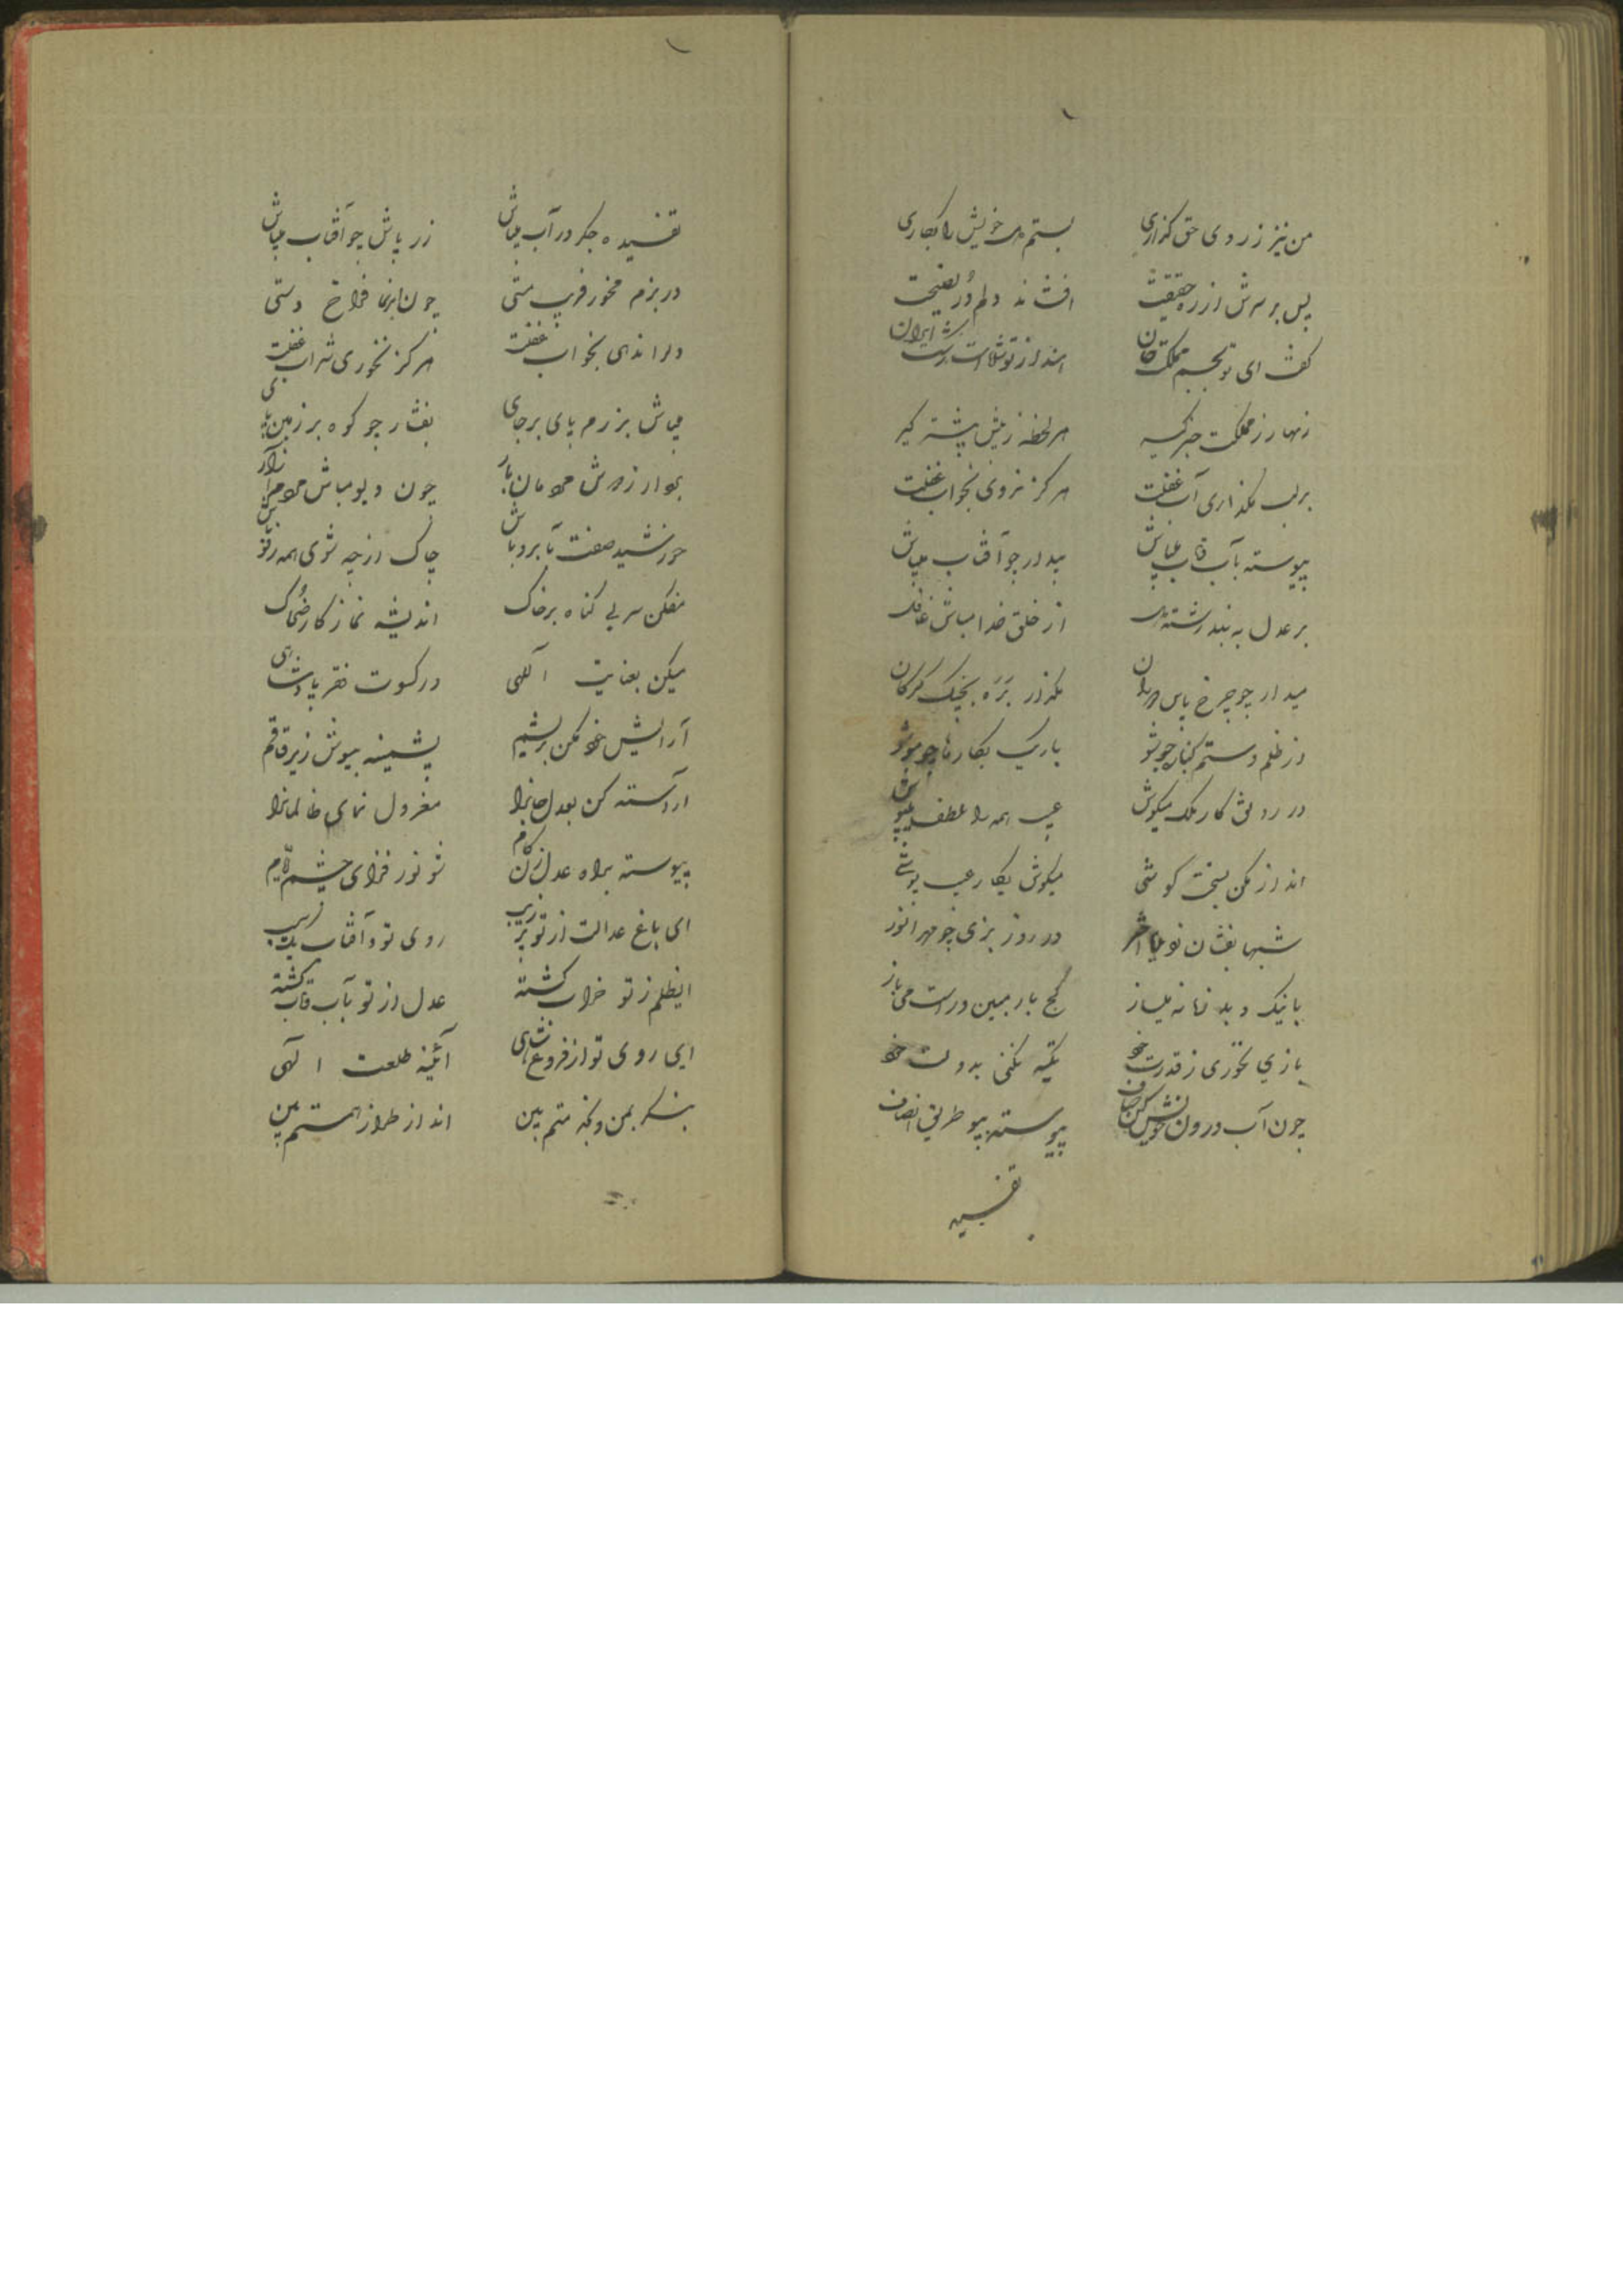 من نیز ز روی حق گذاری بستم خویش را بکاری
پس بر سرش از ره حقیقت افشاند دلم دُر نصیحت
گفت ای تو بجسم مملکت جان ایران
زنهار ز مملکت خبر گیر هر لحظه ز پیش بیشتر گیر
بر لب نگذاری آب غفلت هرگز نروی بخواب غفلت
پیوسته بآب و تاب میباش بیدار چو آفتاب میباش
بر عدل به بند رشته از خلق خدا مباش غافل
میدار چو چرخ پاس مگذار بره بچنگ گرگان
از ظلم و ستم کنار جو شو باریک بکارها چو مو شو
در رونق کار ملک میکوش عیب همه را بلطف میپوش
انداز مکن بسخت کوشی میکوش بکار عیب پوشی
شبها بفشان اختر در روز بزی چو مهر انور
با نیک و بد زمانه میساز کج بار مبین و راست می باز
بازی نخوری ز قدرت خود تکیه نکنی بدولت خود
چون آب درون خویش کن صاف پیوسته بپو طریق انصاف
تفسیده
تفسیده جگر در آب میباش زر پاش چو آفتاب میباش
در بزم مخور فریب مستی چون ابر نما فراخ دستی
دل را ندهی بخواب غفلت هرگز نخوری شراب غفلت
میباش بزرم پای برجای بفشار چو کوه بر زمین پای
چون دیو مباش
خورشید صفت با برو باش چاک از چه شوی همه رفو باش
مفکن سر بی گناه بر خاک اندیشه نما ز کار ضحاک
میکن بعنایت الهی در کسوت فقر پادشاهی
آرایش خود مکن بریشم پشمینه بپوش زیر قاقم
آراسته کن بعدل جانرا معزول نمای ظالمانرا
پیوسته براه عدل زن گام شو نور فزای چشم
ای باغ عدالت از تو پر زیب روی تو و آفتاب یک سیب
ای ظلم ز تو خراب گشته عدل از تو بآب و تاب گشته
ای روی تو از فروغ شاهی آئینه طلعت الهی
بنگر بمن و بین انداز طراز بین